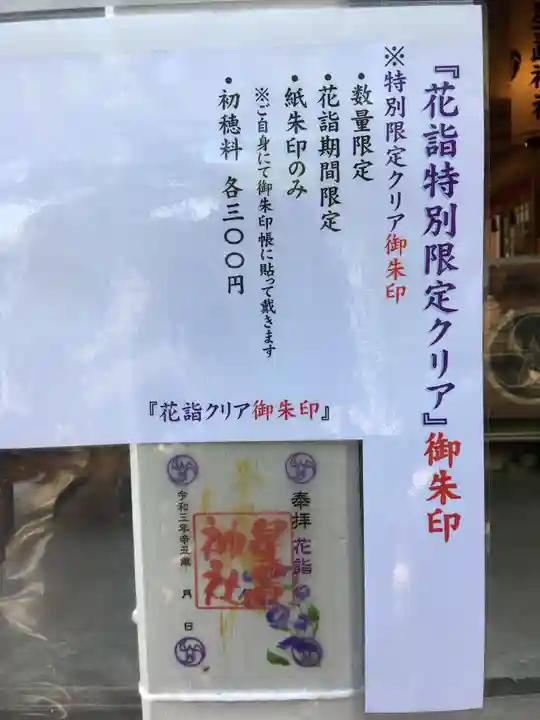 『花詣特別限定クリア』御朱印
※特別限定クリア御朱印
・数量限定
・花詣期間限定
・紙朱印のみ
※ご自身にて御朱印帳に貼って戴きます
・初穂料 各三〇〇円
『花詣クリア御朱印』
奉拝 花詣
神社
令和三年辛丑歳 月 日